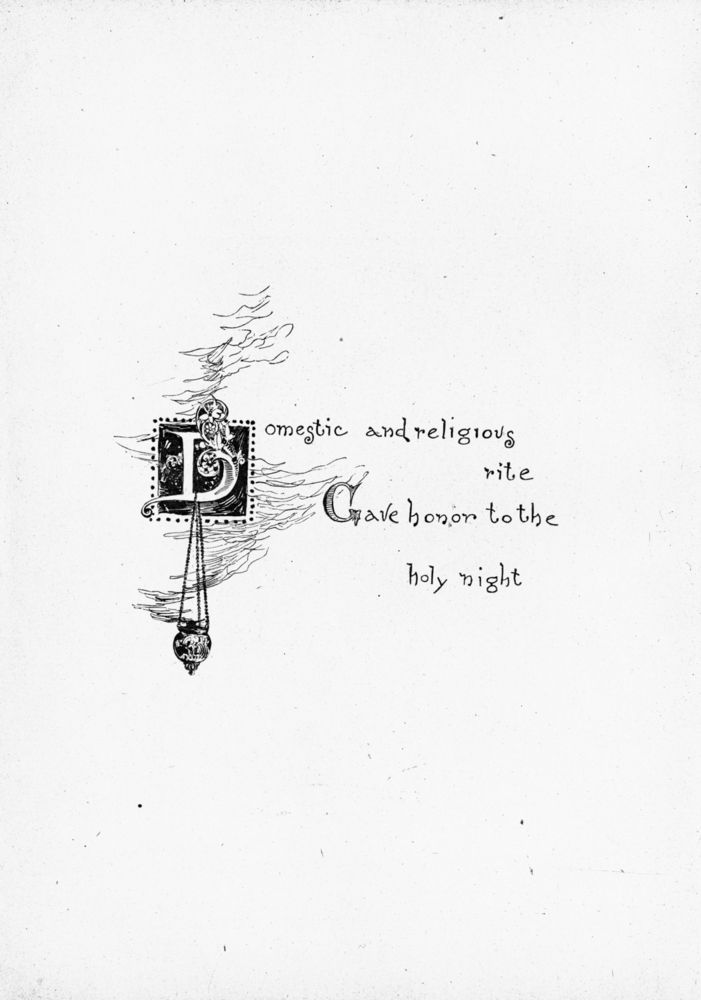 Domestic and religious
rite
Gave honor to the
holy night